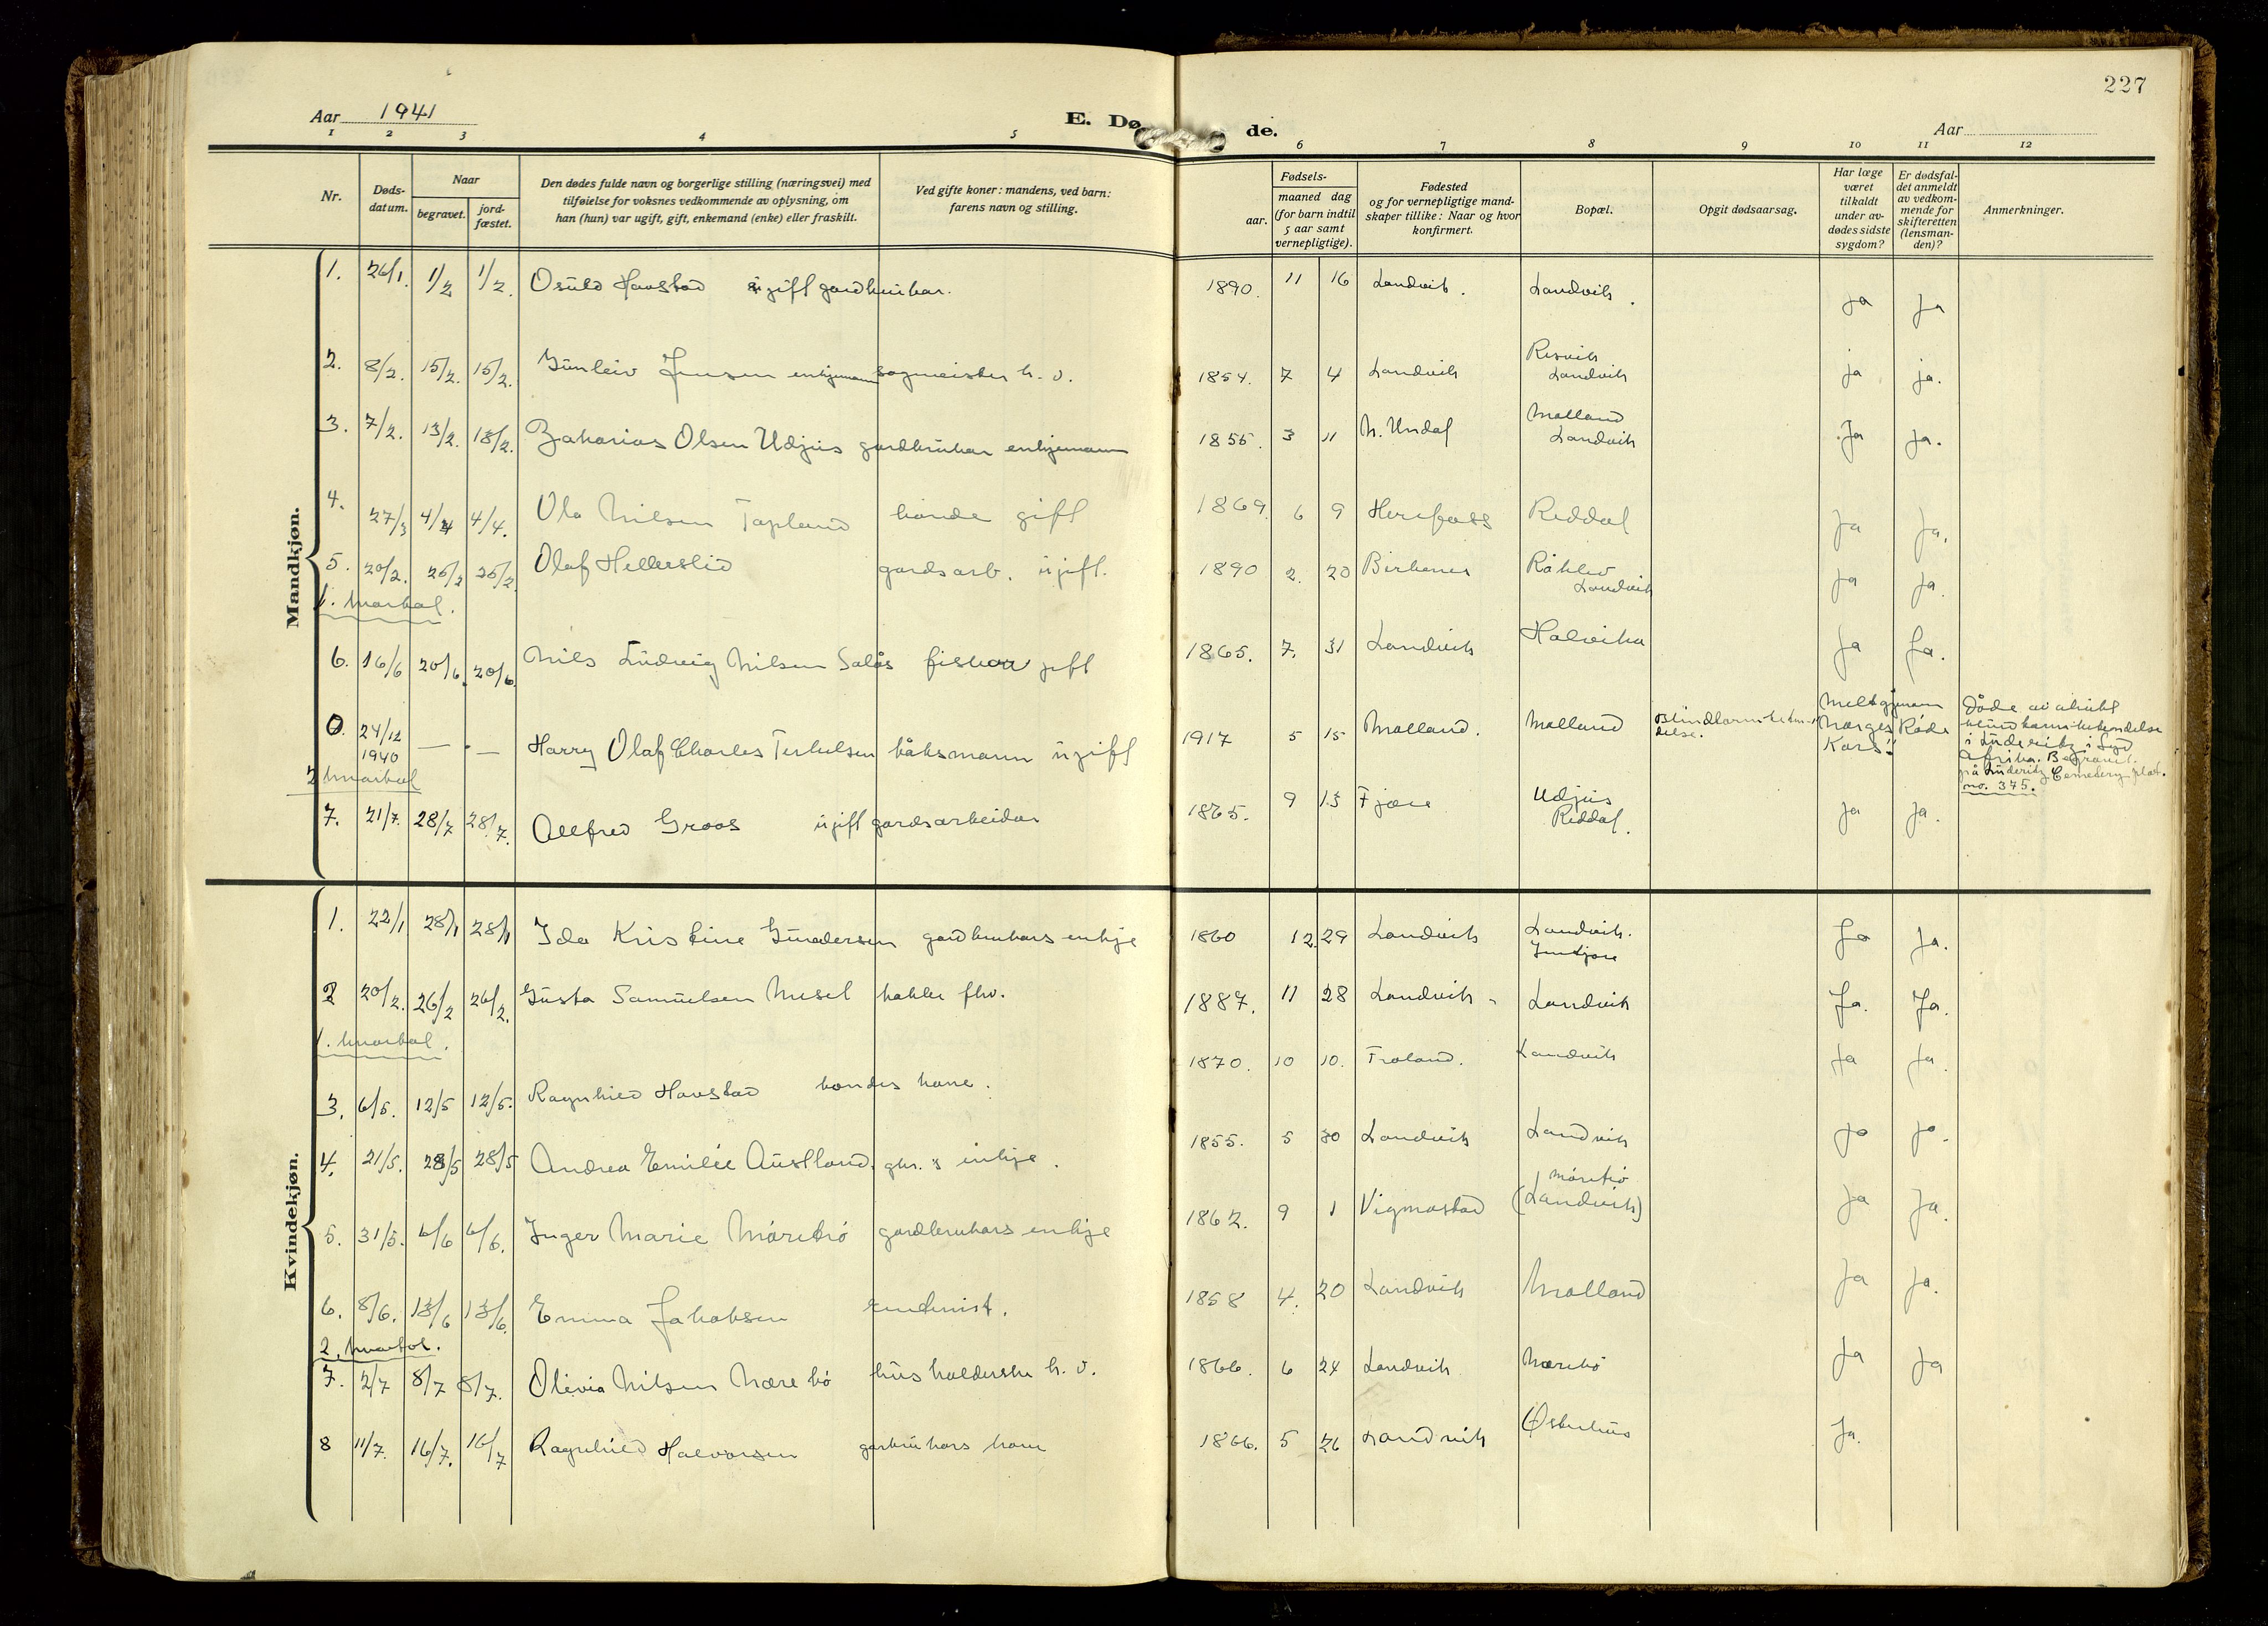 227
Aar 1941
E. Dø
de.
Aar
1 2 3 4 5 6 7 8 9 10 11 12
Nr.
Døds-
datum.
Naar
begravet.
jord-
fæstet.
Den dødes fulde navn og borgerlige stilling (næringsvei) med
tilføielse for voksnes vedkommende av oplysning, om
han (hun) var ugift, gift, enkemand (enke) eller fraskilt.
Ved gifte koner: mandens, ved barn:
farens navn og stilling.
Fødsels-
aar.
maaned dag
(for barn indtil
5 aar samt
vernepligtige).
Fødested
og for vernepligtige mand-
skaper tillike: Naar og hvor
konfirmert.
Bopæl.
Opgit dødsaarsag.
Har læge
været
tilkaldt
under av-
dødes sidste
sygdom?
Er dødsfal-
det anmeldt
av vedkom-
mende for
skifteretten
(lensman-
den)?
Anmerkninger.
Mandkjøn.
1. 26/1. 1/2 1/2. Osuld Havstad ugift gardbrukar. 1890. 11 16 Landvik. Landvik. Ja Ja
2. 8/2. 15/2. 15/2. Gunleiv Jensen enkjemann sagmeister h. v. 1854. 7 4 Landvik Resvik Landvik ja ja.
3. 7/2. 13/2. 13/2. Zakarias Olsen Udjus gardbrukar enkjemann 1855. 3 11 N. Undal Molland Landvik Ja Ja.
4. 27/3 4/4 4/4. Ola Nilsen Tapland bonde gift 1869. 6 9 Herefoss Reddal Ja Ja.
5. 20/2. 26/2 26/2 Olaf Hellerslid gardsarb. ugift. 1890 2. 20 Birkenes Landvik Ja Ja.
1. kvartal.
6. 16/6 20/6. 20/6. Nils Ludvig Nilsen Salås fiskar gift 1865. 7. 31 Landvik Halvika Ja Ja.
0. 24/12 1940 — . — Harry Olaf Charles Terkelsen båtsmann ugift 1917 5 15 Molland. Molland
Norges Røde
Kors!!
Døde av akutt
i Lüderitz i Syd
Afrika. Begravet
på Lüderitz Cemetery plot.
no. 375.
2 kvartal
7. 21/7. 28/7 28/7. Alfred Groos ugift gardsarbeidar 1865. 9 13 Fjære Udjus Reddal. Ja Ja.
Kvindekjøn.
1. 22/1 28/1 28/1 Ida Kristine Gundersen gardbrukars enkje 1860 12. 29 Landvik Landvik. Ja Ja.
2 20/2. 26/2 26/2. Gusta Samuelsen Mesel fhv. 1887. 11 28 Landvik Landvik Ja. Ja.
1. kvartal.
3. 6/5. 12/5 12/5. Ragnhild Havstad bondes kone. 1870. 10 10. Froland. Landvik Ja Ja.
4. 21/5. 28/5 28/5 Andrea Emilie Austland. gbr.'s enkje. 1855. 5 30 Landvik Landvik Ja Ja.
5. 31/5. 6/6 6/6. Inger Marie Mørebø gardbrukars enkje 1862. 9 1 Vigmostad Mørebø (Landvik) Ja Ja.
6. 8/6. 13/6 13/6. Emma Jakobsen 1858 4. 20 Landvik Molland Ja Ja.
2. kvartal.
7. 2/7 8/7 8/7. Olivia Nilsen Mørebø husholderske h. v. 1866. 6 24 Landvik Mørebø Ja Ja
8 11/7. 16/7. 16/7 Ragnhild Halvorsen garbrukars kone 1866. 5 26 Landvik Østerhus Ja.